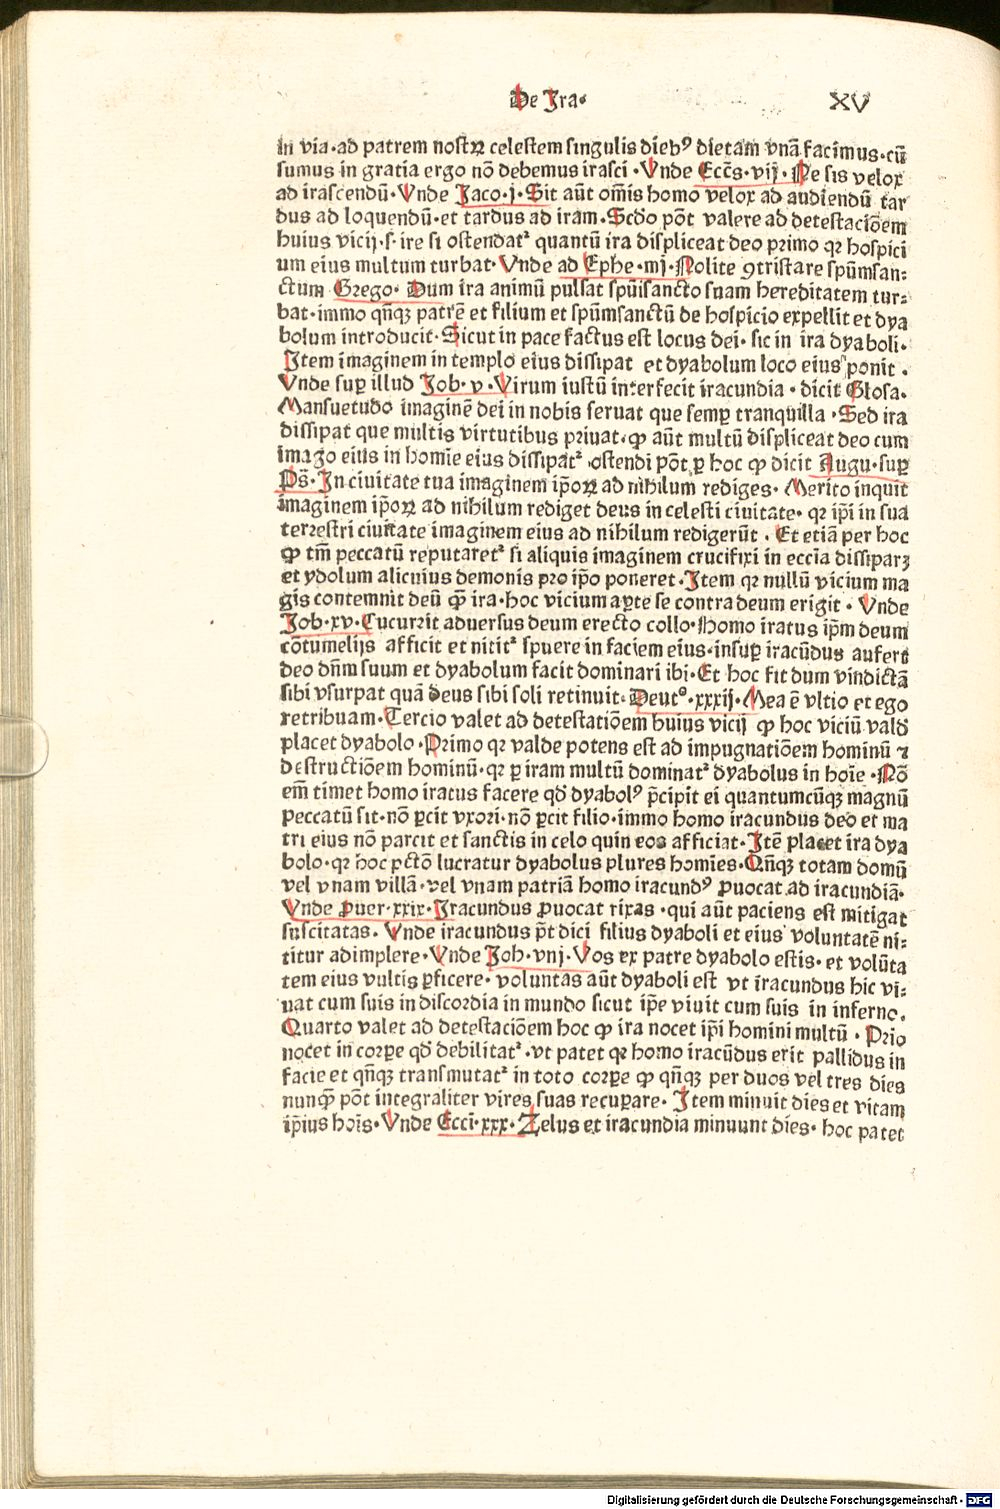 De Ira· XV
in via·ad patrem nostrꝝ celestem singulis dieb⁹ dietam vnã facimus·cũ
sumus in gratia ergo nõ debemus irasci·Vnde Ecc̃s·vij·Ne sis velox
ad irascendũ·Vnde Jaco·j·Sit aũt om̃is homo velox ad audiendũ tar
dus ad loquendũ·et tardus ad iram·Scdo põt valere ad detestaciõem
huius vicij·s·ire si ostendat᷑ quantũ ira displiceat deo primo qꝛ hospici
um eius multum turbat·Vnde ad Ephe·iiij·Nolite ꝯtristare spũmsan:
ctum Grego·Dum ira animũ pulsat spũisancto suam hereditatem tur:
bat·immo qñqꝫ patrẽ et filium et spũmsanctũ de hospicio expellit et dya
bolum introducit·Sicut in pace factus est locus dei·sic in ira dyaboli·
Item imaginem in templo eius dissipat et dyabolum loco eius ponit·
Vnde suꝑ illud Job·v·Virum iustũ interfecit iracundia·dicit Glosa·
Mansuetudo imaginẽ dei in nobis seruat que semꝑ tranquilla·Sed ira
dissipat que multis virtutibus priuat·ꝙ aũt multũ displiceat deo cum
imago eius in homie eius dissipat᷑ ostendi põt ꝑ hoc ꝙ dicit Augu·suꝑ
Ps̃·In ciuitate tua imaginem ip̃oꝝ ad nihilum rediges·Merito inquit
imaginem ip̃oꝝ ad nihilum rediget deus in celesti ciuitate·qꝛ ip̃i in sua
terrestri ciuitate imaginem eius ad nihilum redigerũt·Et etiã per hoc
ꝙ tm̃ peccatũ reputaret᷑ si aliquis imaginem crucifixi in eccĩa dissiparꝫ
et ydolum alicuius demonis pro ip̃o poneret·Item qꝛ nullũ vicium ma
gis contemnit deũ ꝙ̃ ira·hoc vicium aꝑte se contra deum erigit·Vnde
Job·xv·Cucurrit aduersus deum erecto collo·Homo iratus ip̃m deum
cõtumelijs afficit et nitit᷑ spuere in faciem eius·insuꝑ iracũdus aufert
deo dñm suum et dyabolum facit dominari ibi·Et hoc fit dum vindictã
sibi vsurpat quã deus sibi soli retinuit·Deut°·xxxij·Mea ẽ vltio et ego
retribuam·Tercio valet ad detestatiõem huius vicij ꝙ hoc viciũ vald
placet dyabolo·Primo qꝛ valde potens est ad impugnatiõem hominũ ⁊
destructiõem hominũ·qꝛ ꝑ iram multũ dominat᷑ dyabolus in hoĩe·Nõ
em̃ timet homo iratus facere qd̃ dyabol⁹ p̃cipit ei quantumcũqꝫ magnũ
peccatũ sit·nõ ꝑcit vxori·nõ ꝑcit filio·immo homo iracundus deo et ma
tri eius nõ parcit et sanctis in celo quin eos afficiat·Itẽ placet ira dya
bolo·qꝛ hoc pctõ lucratur dyabolus plures homĩes·Qñqꝫ totam domũ
vel vnam villã·vel vnam patriã homo iracund⁹ ꝓuocat ad iracundiã·
Vnde ꝓuer·xxix·Iracundus ꝓuocat rixas·qui aũt paciens est mitigat
suscitatas·Vnde iracundus p̃t dici filius dyaboli et eius voluntatẽ ni:
titur adimplere·Vnde Joh·viij·Vos ex patre dyabolo estis·et volũta
tem eius vultis ꝑficere·voluntas aũt dyaboli est vt iracundus hic vi:
uat cum suis in discordia in mundo sicut ip̃e viuit cum suis in inferno·
Quarto valet ad detestaciõem hoc ꝙ ira nocet ip̃i homini multũ·Prĩo
nocet in corꝑe qd̃ debilitat᷑·vt patet qꝛ homo iracũdus erit pallidus in
facie et qñqꝫ transmutat᷑ in toto corꝑe ꝙ qñqꝫ per duos vel tres dies
nunꝙ̃ põt integraliter vires suas recuꝑare·Item minuit dies et vitam
ip̃ius hoĩs·Vnde Ecci·xxx·Zelus et iracundia minuunt dies·hoc patet
Digitalisierung gefördert durch die Deutsche Forschungsgemeinschaft - DFG